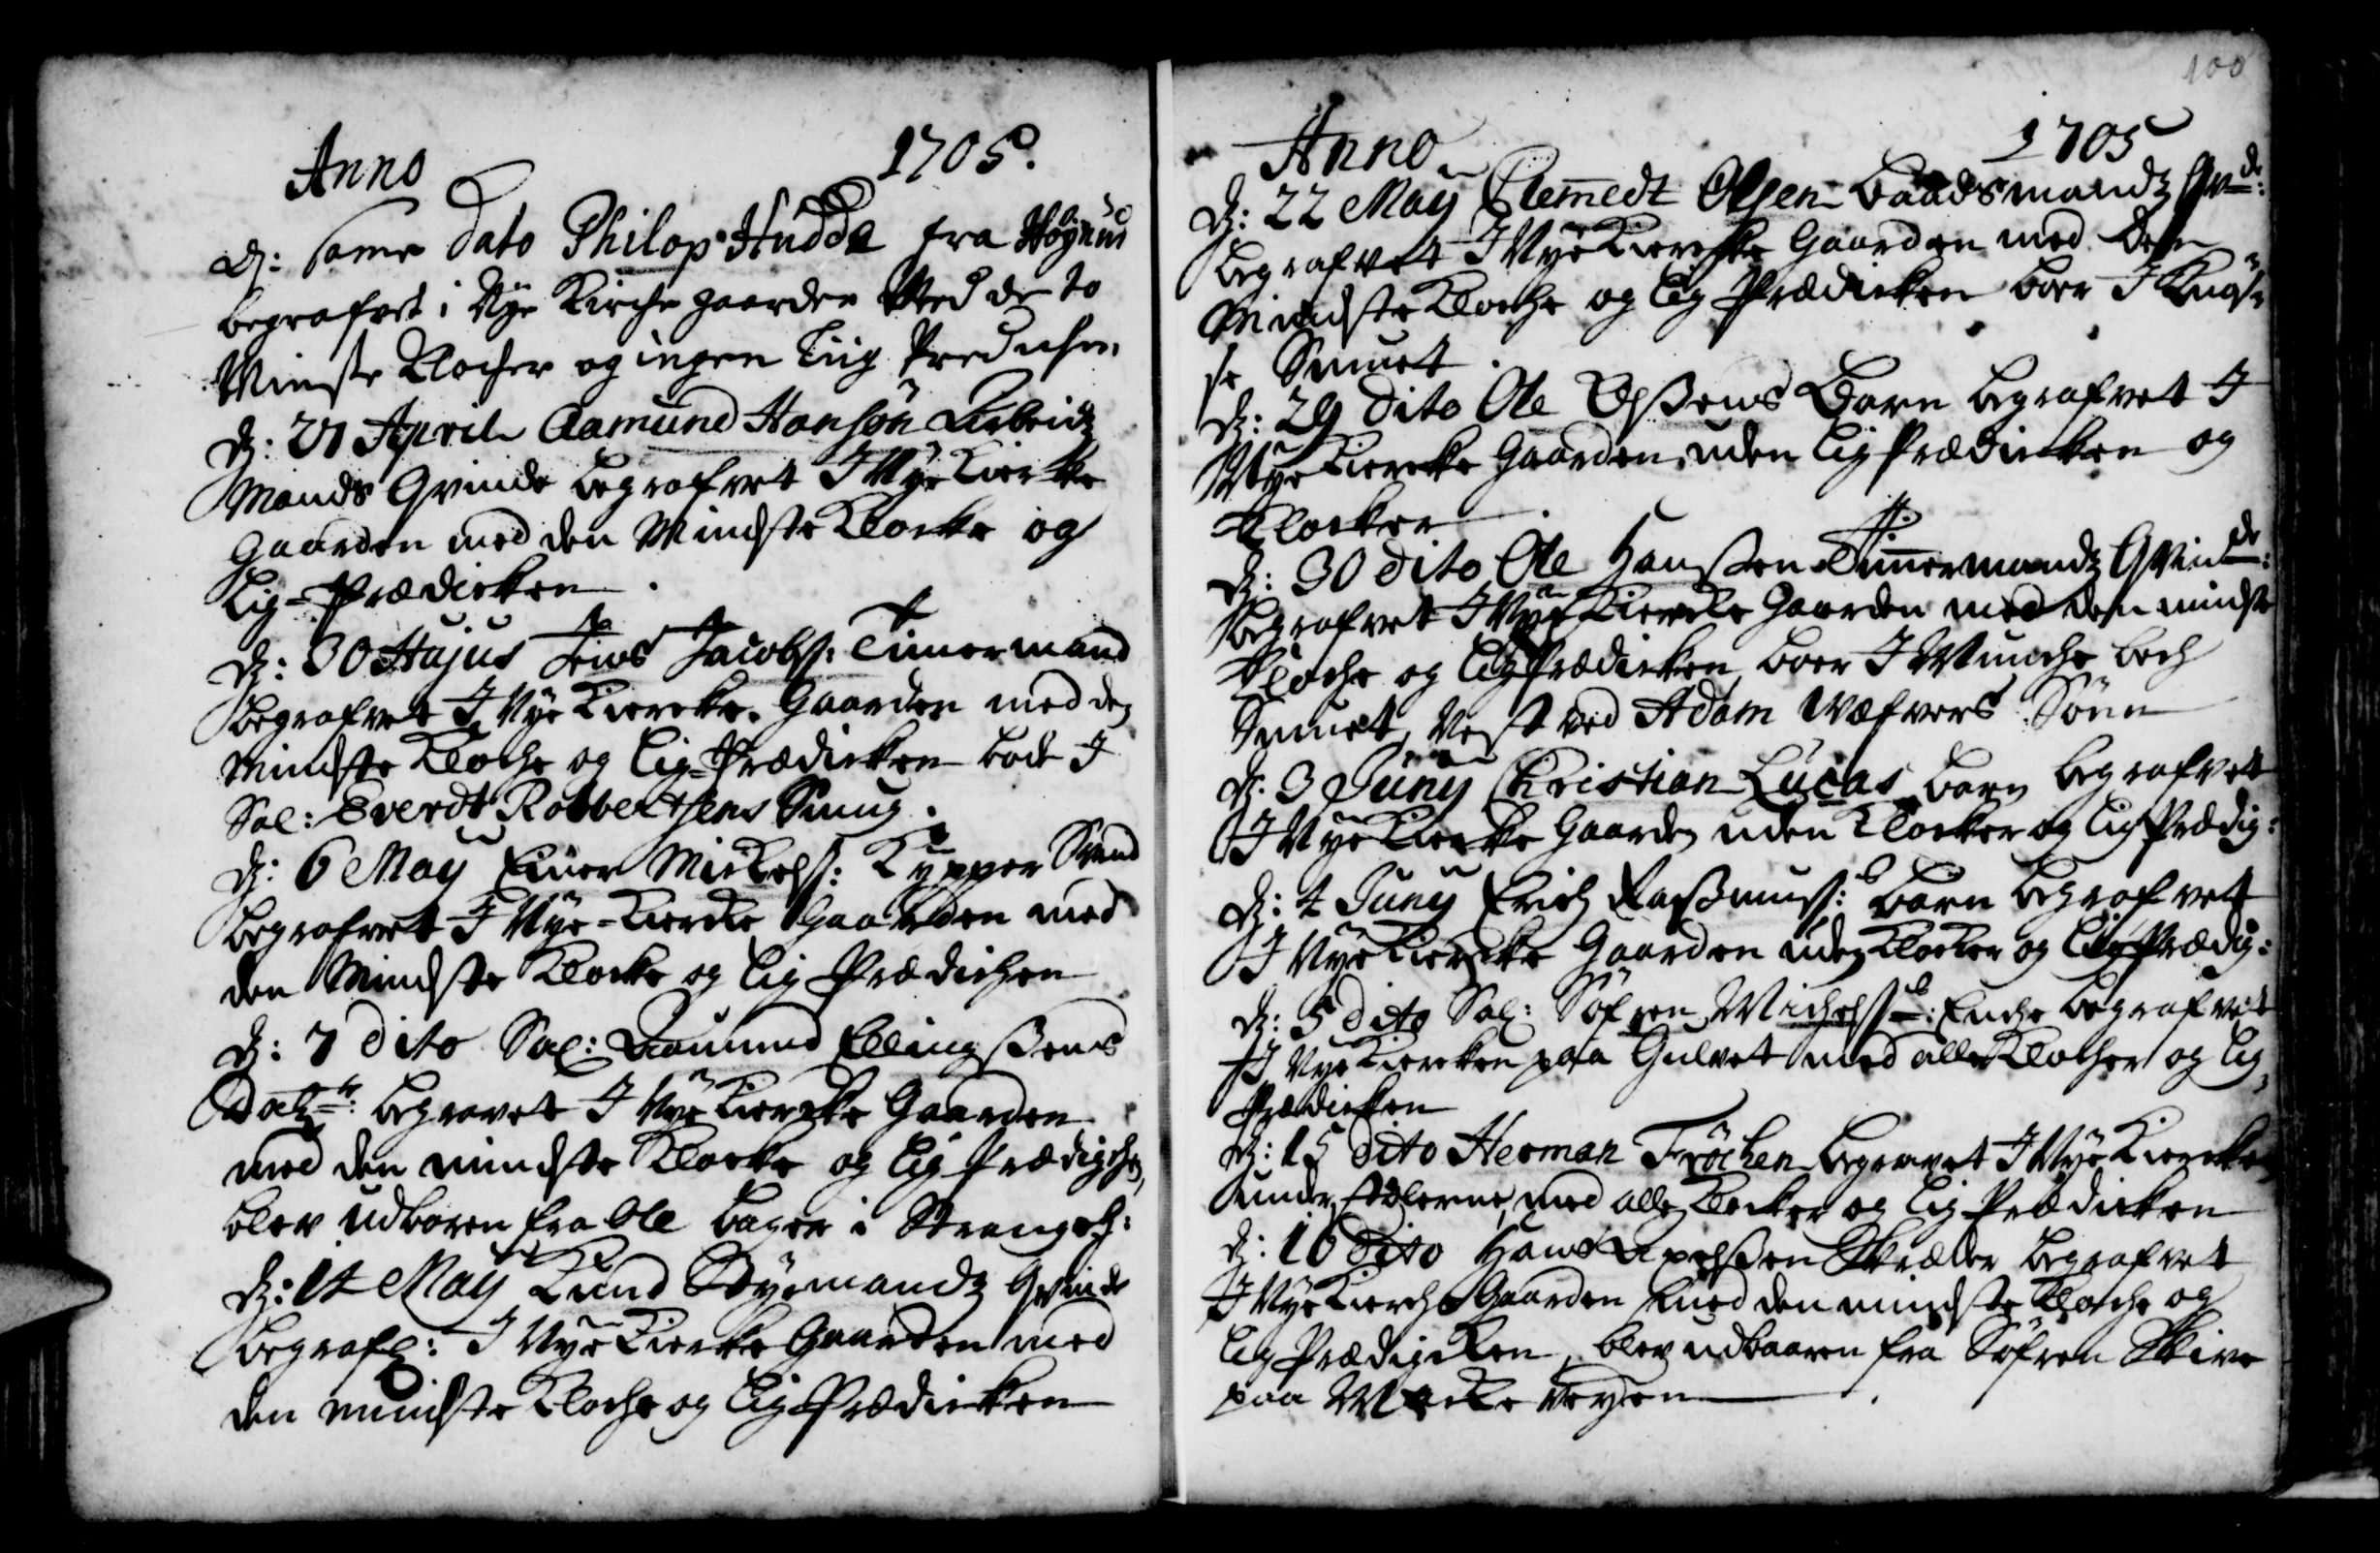 Anno 1705.
D: same dato Philop Hudde fra
begrafvet i Nye Kirche gaarden Med de to
Minste Klocher og ingen Liig Predichen
D: 21 April Aamund Hansøn Arbeidz
Mands Qvinde begrafvet I Nye Kiercke
Gaarden med den Mindste Klocke og
Lig-Prædicken
D: 30 Hujus Jens Jacobs: Timermand
Begrafvet I Nye Kiercke Gaarden med den
mindste Klocke og Lig-Prædicken boede I
Sal: Everdt Robbertsens Smug.
D: 6 May Einer Mickels: Kypper Svend
Begrafvet I Nye-Kiercke Gaarden med
den Mindste Klocke og Lig Prædichen
D: 7 dito Sal: Aamund Ellingßens
Dat-er: begravet I Nye Kiercke Gaarden
med den mindste Klocke og Lig Prædigchen,
blev udboren fra Ole Bager i Strangeh:
D: 14 May Knud Styrmandz Qvinde
Begrafv: I Nye Kiercke Gaarden med
den mindste Klocke og Lig Prædicken
100
Anno 1705
D: 22 May Clemedt Olsen Baadsmandz Qv-de:
Begrafvet I Nye Kiercke Gaarden med den
Mindste Klocke og Lig Prædicken boer I
Smuet.
D: 29 dito Ole Barn begrafvet I
Nye Kiercke Gaarden, uden Lig Prædicken og
Klocker
D: 30 dito Ole Hanßen Timmermandz Qvin-de:
Begrafvet I Nye Kiercke Gaarden med den mindste
Klocke og Lig Prædicken boer I Munche bech
Smuet, Nest ved Adam Wæfvers Sønn
D: 3 Juny Christian Lucas barn begrafvet
I Nye Kiercke Gaarden uden Klocker og Lig Prædig:
D: 4 Juny Erich Raßmuss: barn begrafvet
I Nye Kiercke Gaarden uden Klocker og Lig Prædig:
D: 5 dito Sal: Søfren Michels-s: Encke begrafvet
I Nye Kiercken paa Gulvet med alle Klocker og Lig
Prædicken
D: 15 dito Herman Frøchen begravet I Nye Kiercken
under Stolerne, med alle Klocker og Lig Prædicken
D: 16 dito Hans Skræder begrafvet
I Nye Kierche Gaarden med den mindste Klocke og
Lig Prædigcken, blev udbaaren fra Søfren Skive
paa Marcke Veyen